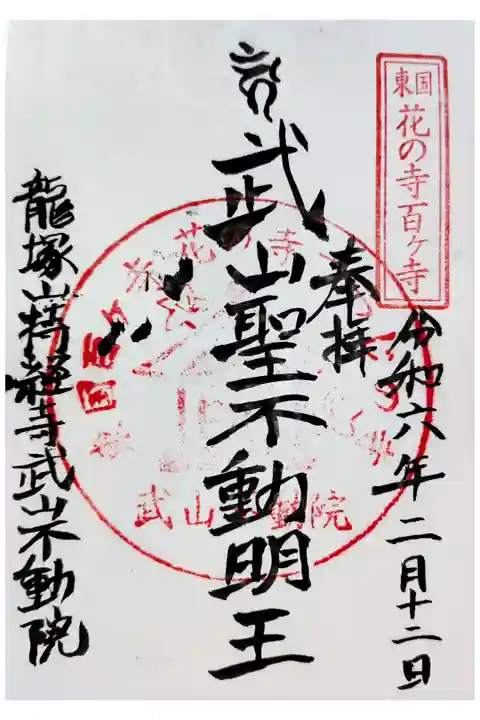 東国花の寺百ヶ寺
令和六年二月十二日
奉拝
武山聖不動明王
龍塚山持経寺武山不動院
花の寺
武山不動院